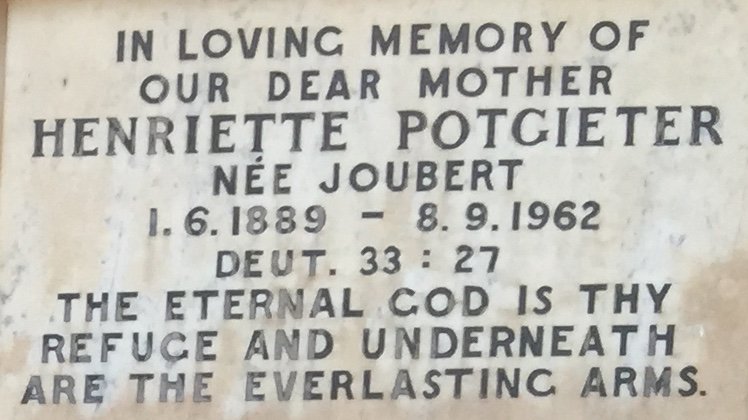 IN LOVING MEMORY OF
OUR DEAR MOTHER
HENRIETTE POTGIETER
NÉE JOUBERT
1.6.1889 - 8.9.1962
DEUT. 33 : 27
THE ETERNAL GOD IS THY
REFUGE AND UNDERNEATH
ARE THE EVERLASTING ARMS.